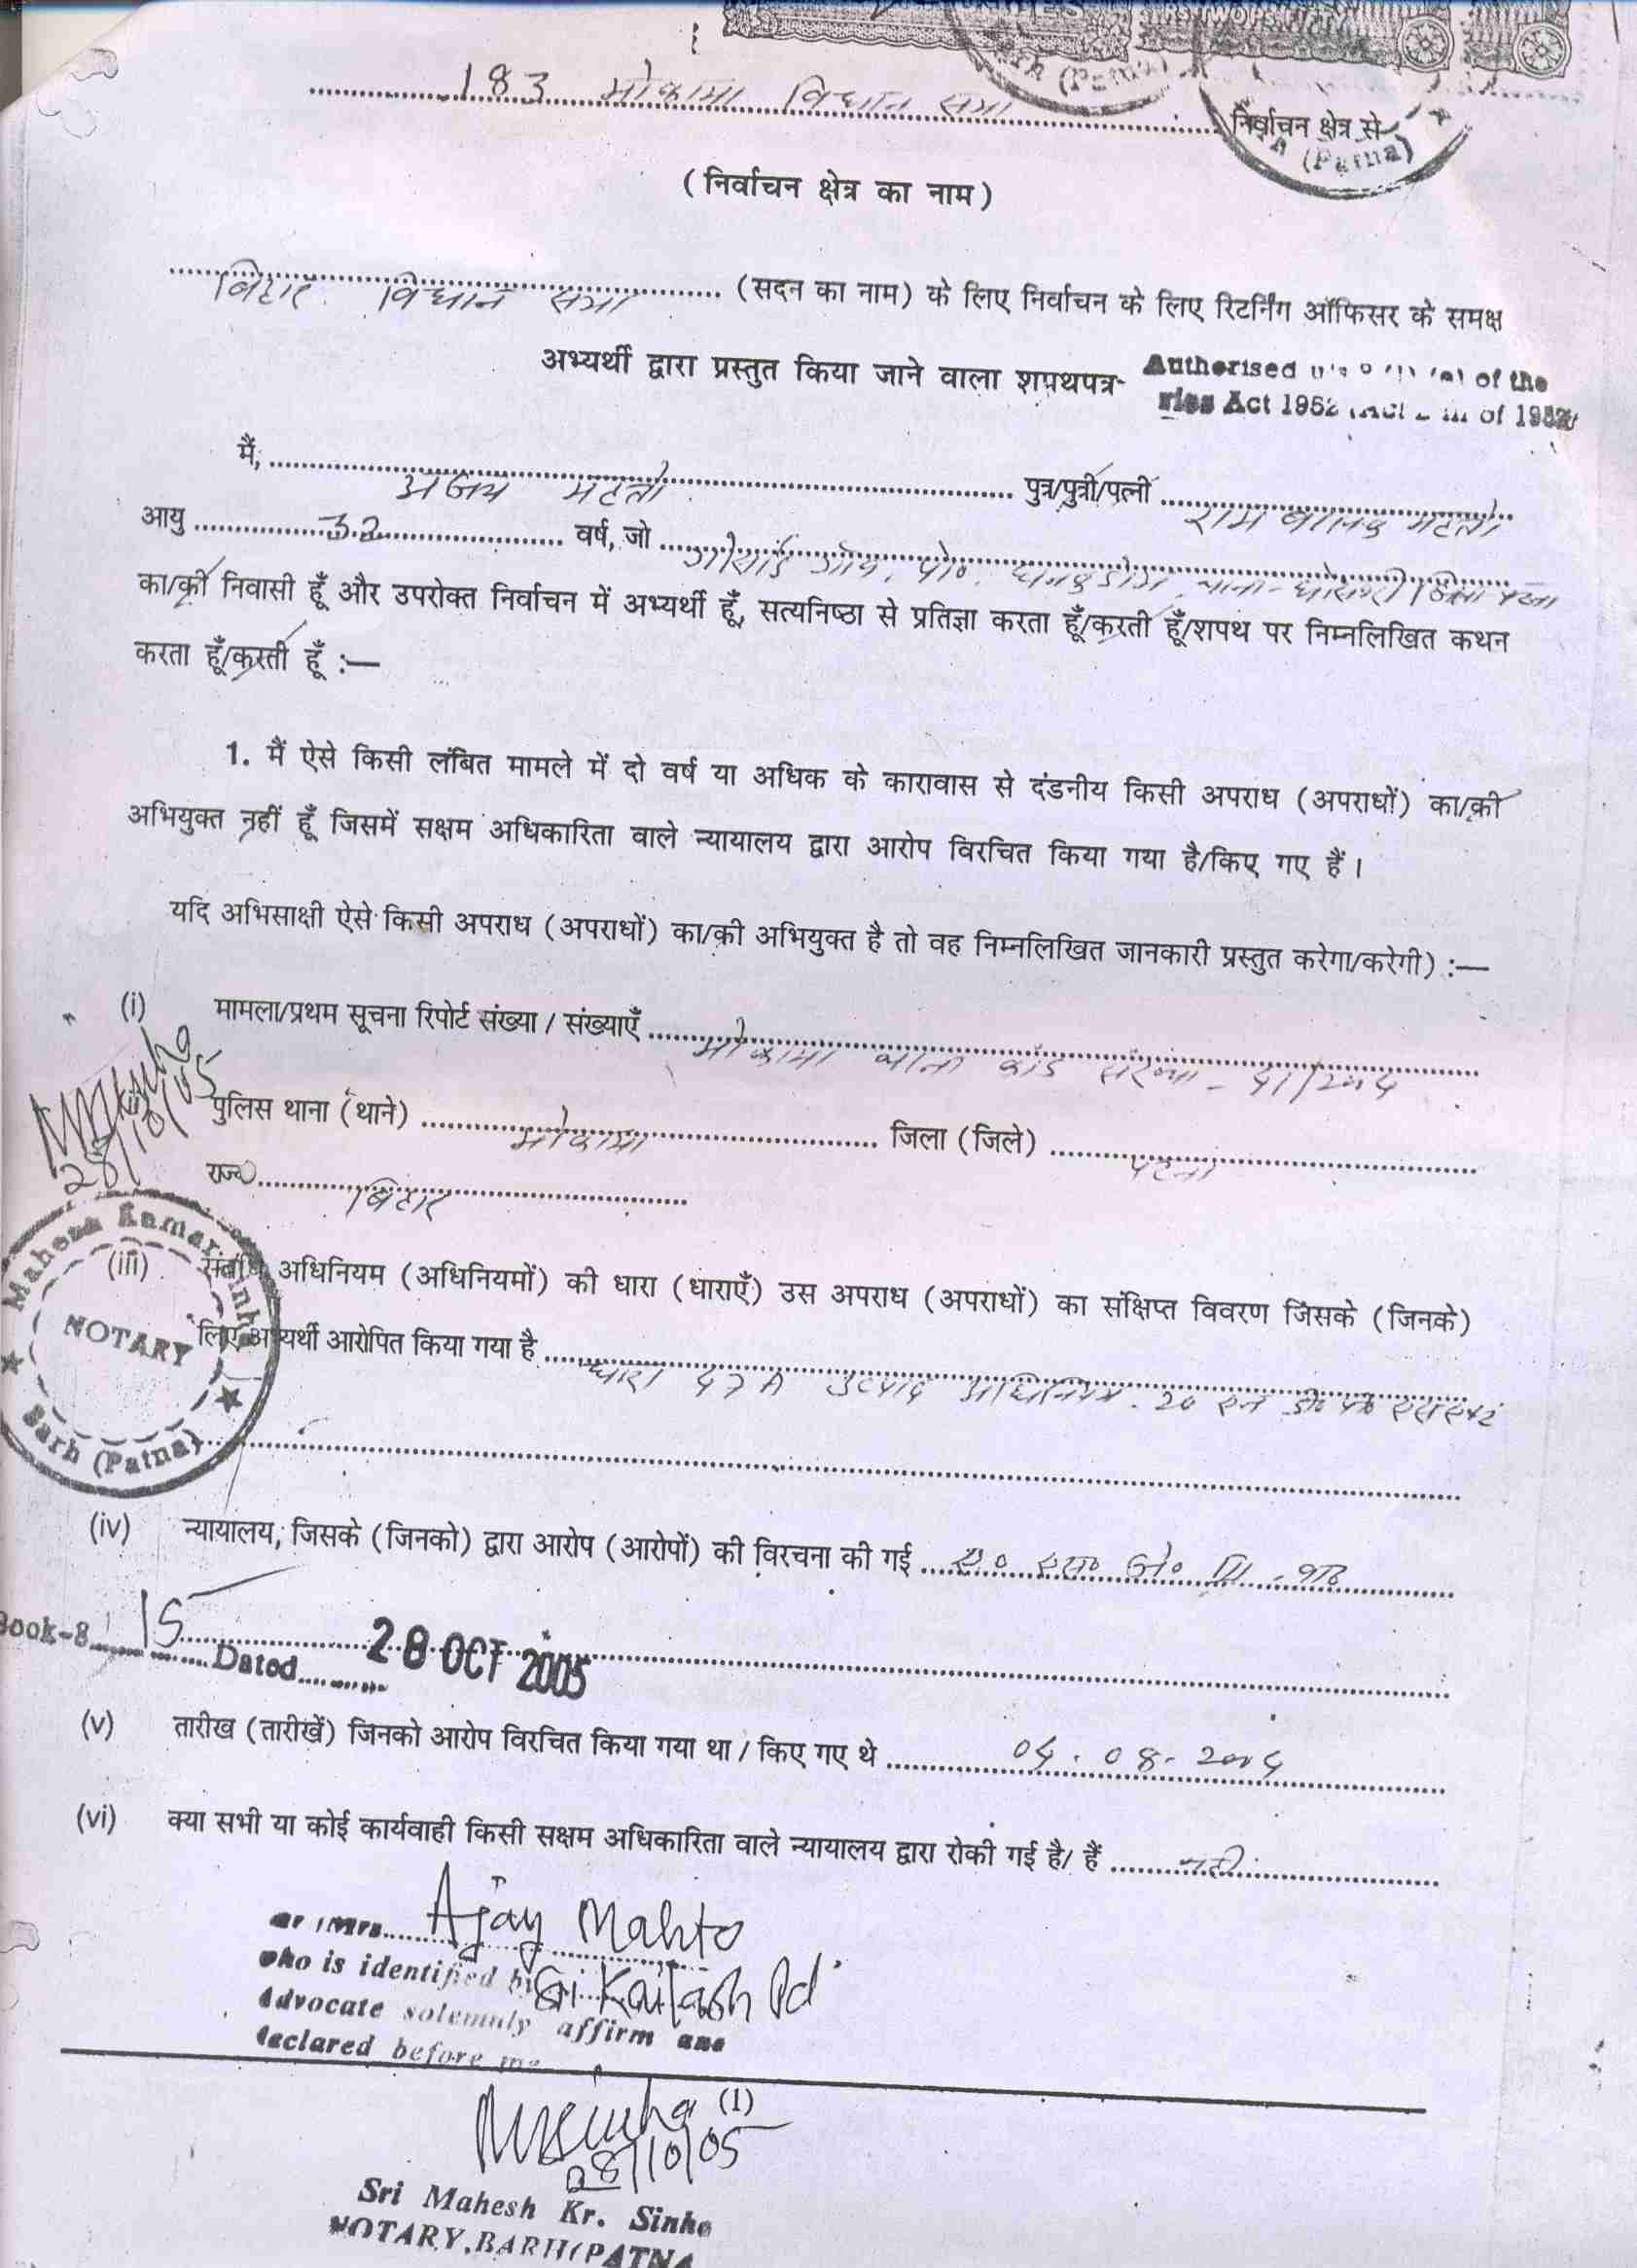 183 मोकामा विधान सभा निर्वाचन क्षेत्र से
(Patna)
(Patna)
(निर्वाचन क्षेत्र का नाम)
बिहार विधान सभा (सदन का नाम) के लिए निर्वाचन के लिए रिटर्निंग ऑफिसर के समक्ष
अभ्यर्थी द्वारा प्रस्तुत किया जाने वाला शपथपत्र-
Authorised of the
ries Act 1952 of 1952
मैं, अजय महतो पुत्र/पुत्री/पत्नी राम बालक महतो
आयु 32 वर्ष, जो गोसाई गाँव, पो०
का/की निवासी हूँ और उपरोक्त निर्वाचन में अभ्यर्थी हूँ, सत्यनिष्ठा से प्रतिज्ञा करता हूँ/करती हूँ/शपथ पर निम्नलिखित कथन
करता हूँ/करती हूँ :—
1. मैं ऐसे किसी लंबित मामले में दो वर्ष या अधिक के कारावास से दंडनीय किसी अपराध (अपराधों) का/की
अभियुक्त नहीं हूँ जिसमें सक्षम अधिकारिता वाले न्यायालय द्वारा आरोप विरचित किया गया है/किए गए हैं।
यदि अभिसाक्षी ऐसे किसी अपराध (अपराधों) का/की अभियुक्त है तो वह निम्नलिखित जानकारी प्रस्तुत करेगा/करेगी) :—
(i) मामला/प्रथम सूचना रिपोर्ट संख्या / संख्याएँ मोकामा थाना कांड संख्या -
पुलिस थाना (थाने) मोकामा जिला (जिले) पटना
28/10/05
राज्य बिहार
Mahesh Kamar Sinha
NOTARY
Barh (Patna)
(iii) संबंधित अधिनियम (अधिनियमों) की धारा (धाराएँ) उस अपराध (अपराधों) का संक्षिप्त विवरण जिसके (जिनके)
लिए अभ्यर्थी आरोपित किया गया है धारा 47A उत्पाद अधिनियम. 20 एन डी०
(iv) न्यायालय, जिसके (जिनको) द्वारा आरोप (आरोपों) की विरचना की गई
Book-8 15
Dated 28 OCT 2005
(v) तारीख (तारीखें) जिनको आरोप विरचित किया गया था / किए गए थे 04.08-2004
(vi) क्या सभी या कोई कार्यवाही किसी सक्षम अधिकारिता वाले न्यायालय द्वारा रोकी गई है/ हैं नहीं
Mr / Mrs. Ajay Mahto
who is identified by Sri Kailash Pd
Advocate solemnly affirm and
declared before me
(1)
28/10/05
Sri Mahesh Kr. Sinha
NOTARY, BARH (PATNA